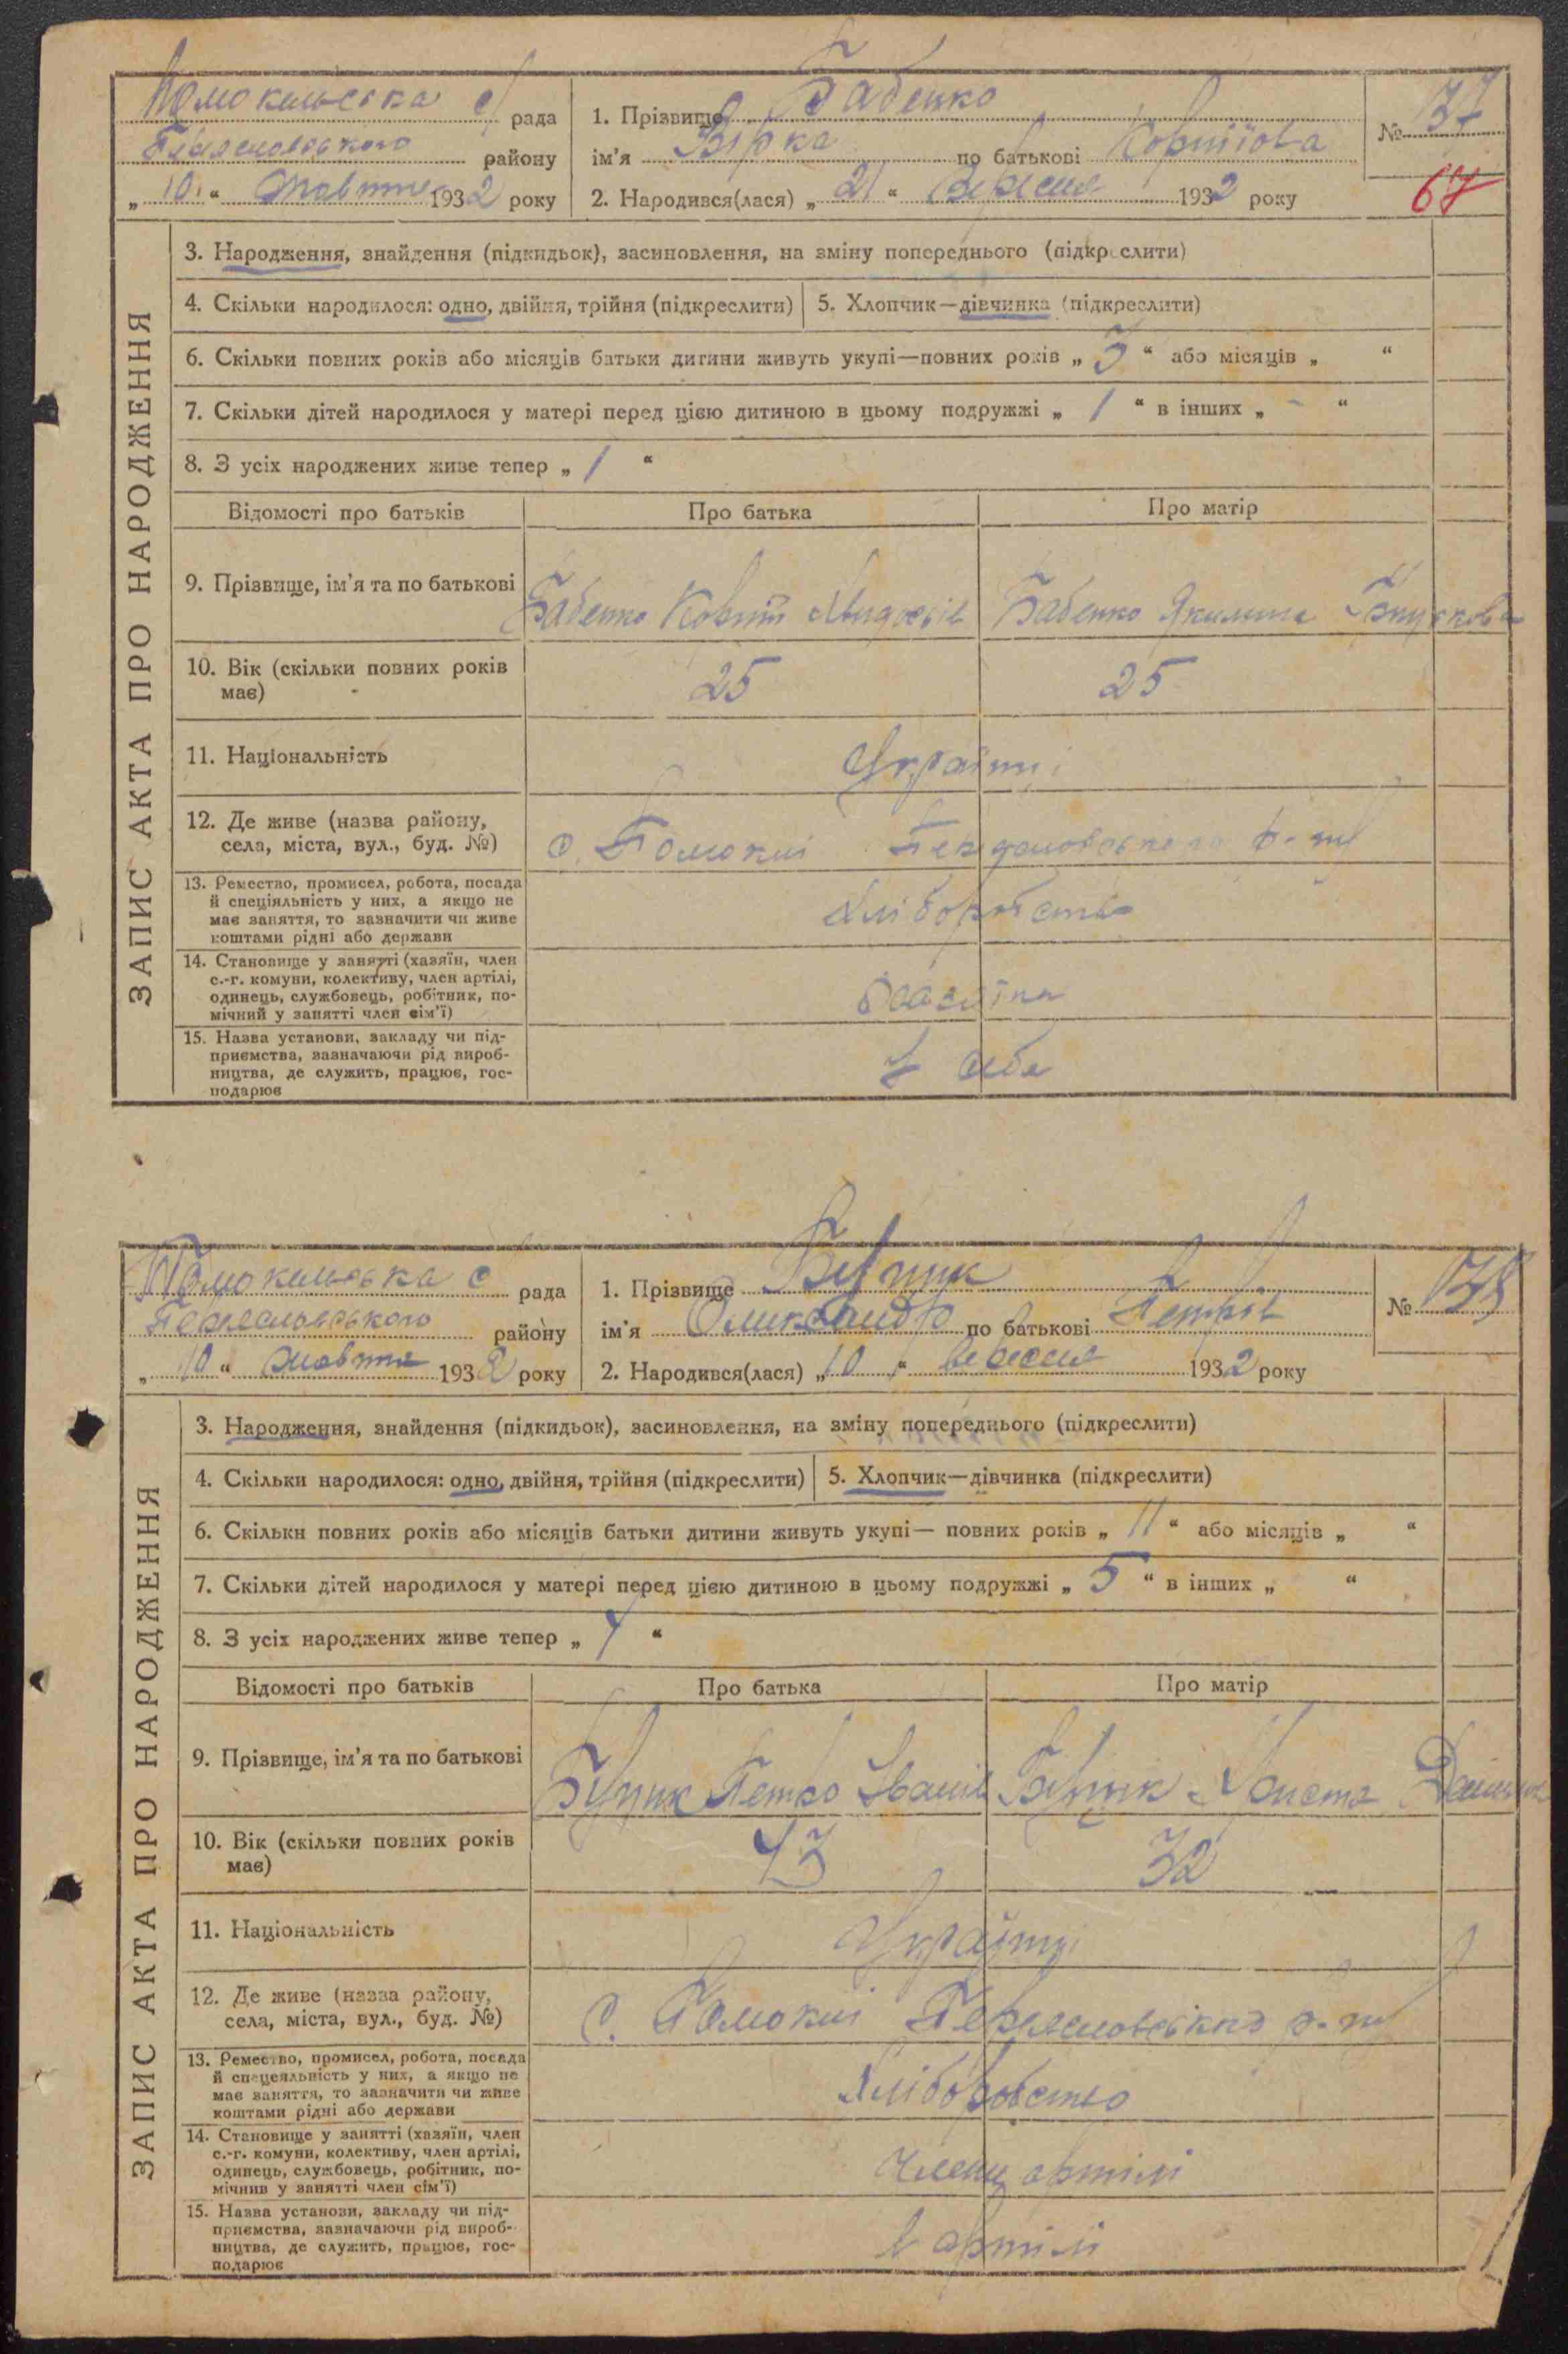 Помокельська с/рада
Переяславського району
„10“ Жовтня 1932 року
1. Прізвище Бабенко
ім'я Вірка по батькові
2. Народився(лася) „21“ Вересня 1932 року
№ 37
67
ЗАПИС АКТА ПРО НАРОДЖЕННЯ
3. Народження, знайдення (підкидьок), засиновлення, на зміну попереднього (підкреслити)
4. Скільки народилося: одно, двійня, трійня (підкреслити) 5. Хлопчик—дівчинка (підкреслити)
6. Скільки повних років або місяців батьки дитини живуть укупі—повних років „3“ або місяців „ “
7. Скільки дітей народилося у матері перед цією дитиною в цьому подружжі „1“ в інших „-“
8. З усіх народжених живе тепер „1“
Відомості про батьків Про батька Про матір
9. Прізвище, ім'я та по батькові
Бабенко Бабенко Якилина
10. Вік (скільки повних років
має)
25 25
11. Національність
Українці
12. Де живе (назва району,
села, міста, вул., буд. №)
с. Помоклі р-ну
13. Ремество, промисел, робота, посада
й спеціяльність у них, а якщо не
має заняття, то зазначити чи живе
коштами рідні або держави
Хліборобство
14. Становище у занятті (хазяїн, член
с.-г. комуни, колективу, член артілі,
одинець, службовець, робітник, по-
мічний у занятті член сім'ї)
15. Назва установи, закладу чи під-
приємства, зазначаючи рід вироб-
ництва, де служить, працює, гос-
подарює
У себе
Помокельська с рада
Переяславського району
„10“ Жовтня 1932 року
1. Прізвище Буцик
ім'я Олександр по батькові Петрів
2. Народився(лася) „10“ вересня 1932 року
№ 38
ЗАПИС АКТА ПРО НАРОДЖЕННЯ
3. Народження, знайдення (підкидьок), засиновлення, на зміну попереднього (підкреслити)
4. Скільки народилося: одно, двійня, трійня (підкреслити) 5. Хлопчик—дівчинка (підкреслити)
6. Скільки повних років або місяців батьки дитини живуть укупі— повних років „11“ або місяців „ “
7. Скільки дітей народилося у матері перед цією дитиною в цьому подружжі „5“ в інших „ “
8. З усіх народжених живе тепер „4“
Відомості про батьків Про батька Про матір
9. Прізвище, ім'я та по батькові
Буцик Петро Іванів Буцик Христа
10. Вік (скільки повних років
має)
43 32
11. Національність
Українці
12. Де живе (назва району,
села, міста, вул., буд. №)
с. Помоклі Переяславського р-ну
13. Ремество, промисел, робота, посада
й спецеяльність у них, а якщо не
має заняття, то зазначити чи живе
коштами рідні або держави
Хліборобство
14. Становище у занятті (хазяїн, член
с.-г. комуни, колективу, член артілі,
одинець, службовець, робітник, по-
мічнив у занятті член сім'ї)
Члени артілі
15. Назва установи, закладу чи під-
приємства, зазначаючи рід вироб-
ництва, де служить, працює, гос-
подарює
В артілі